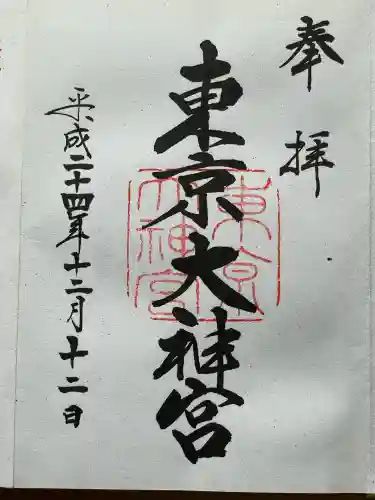 奉拝
東京大神宮
東京大神宮
平成二十四年十二月十二日